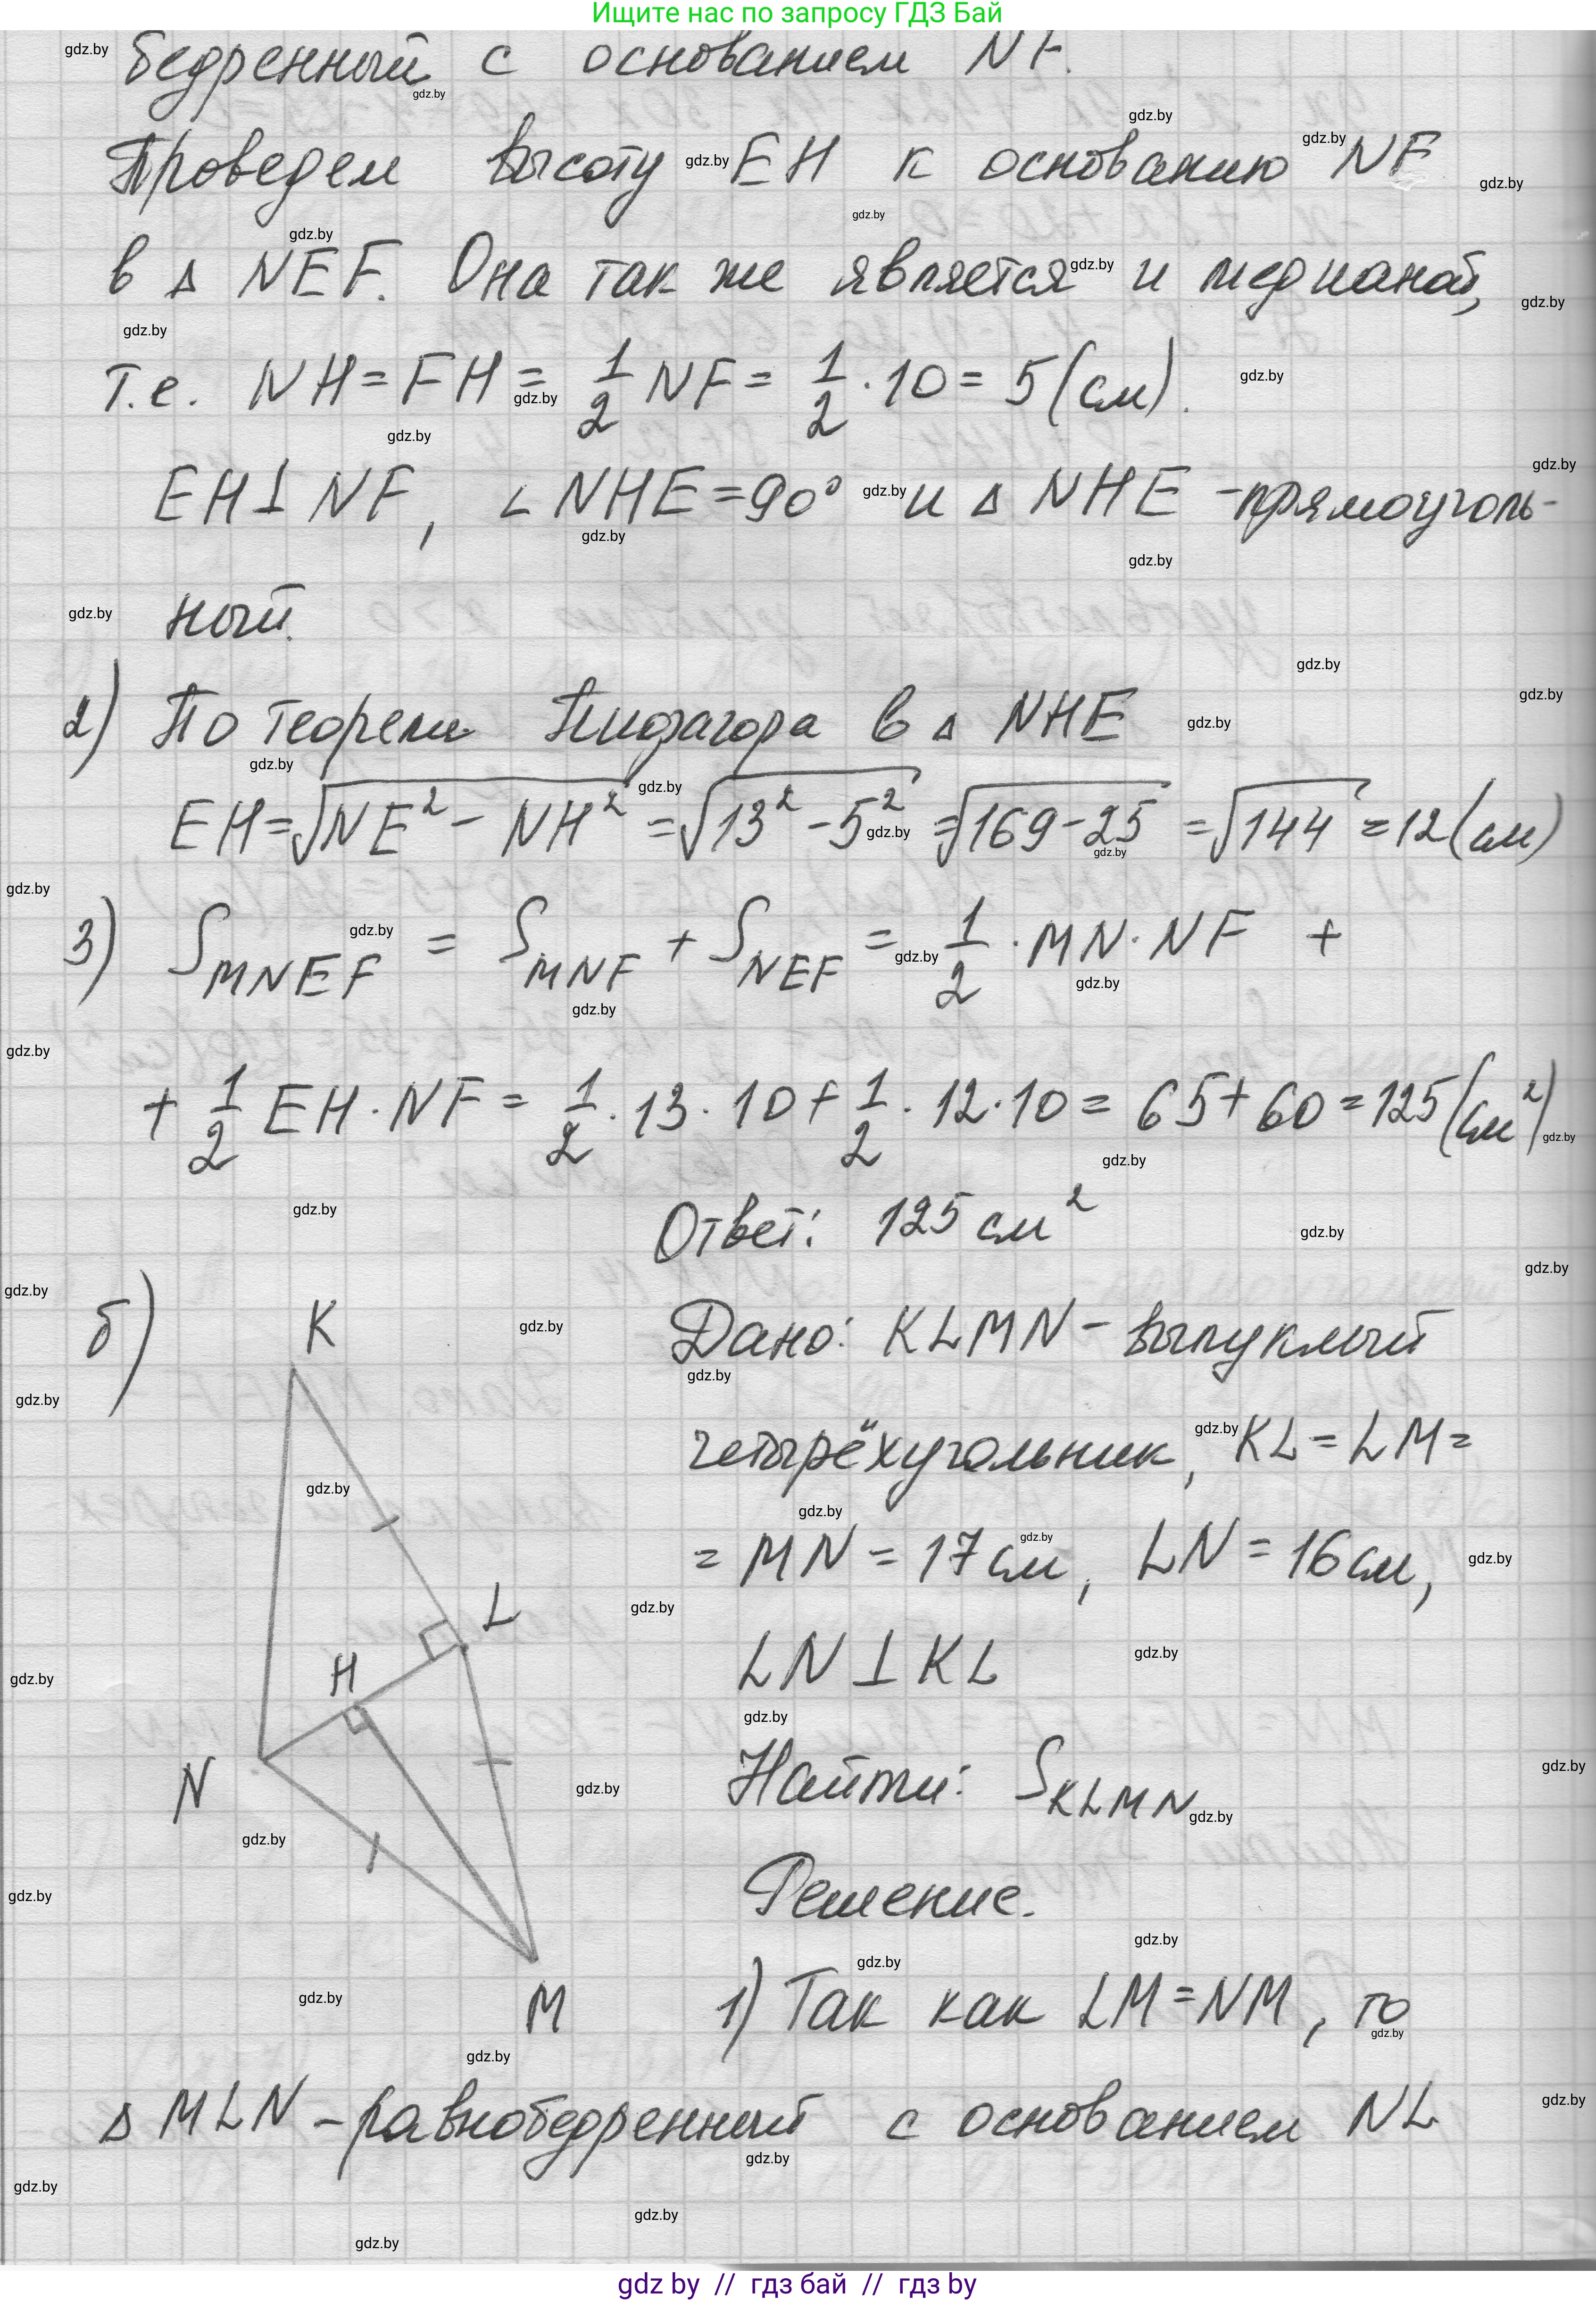 Ищите нас по запросу ГДЗ Бай
бедренный с основанием NF.
Проведем высоту EH к основанию NF
в △ NEF. Она так же является и медианой,
т.е. NH = FH = 1/2 NF = 1/2 · 10 = 5 (см).
EH ⊥ NF, ∠ NHE = 90° и △ NHE - прямоуголь-
ный.
2) По теореме Пифагора в △ NHE
EH = √(NE² - NH²) = √(13² - 5²) = √(169 - 25) = √144 = 12 (см)
3) S MNEF = S MNF + S NEF = 1/2 · MN · NF +
+ 1/2 EH · NF = 1/2 · 13 · 10 + 1/2 · 12 · 10 = 65 + 60 = 125 (см²)
Ответ: 125 см²
б)
K
L
H
N
M
Дано: KLMN - выпуклый
четырёхугольник, KL = LM =
= MN = 17 см, LN = 16 см,
LN ⊥ KL
Найти: S KLMN
Решение.
1) Так как LM = NM, то
△ MLN - равнобедренный с основанием NL
gdz by // гдз бай // гдз by